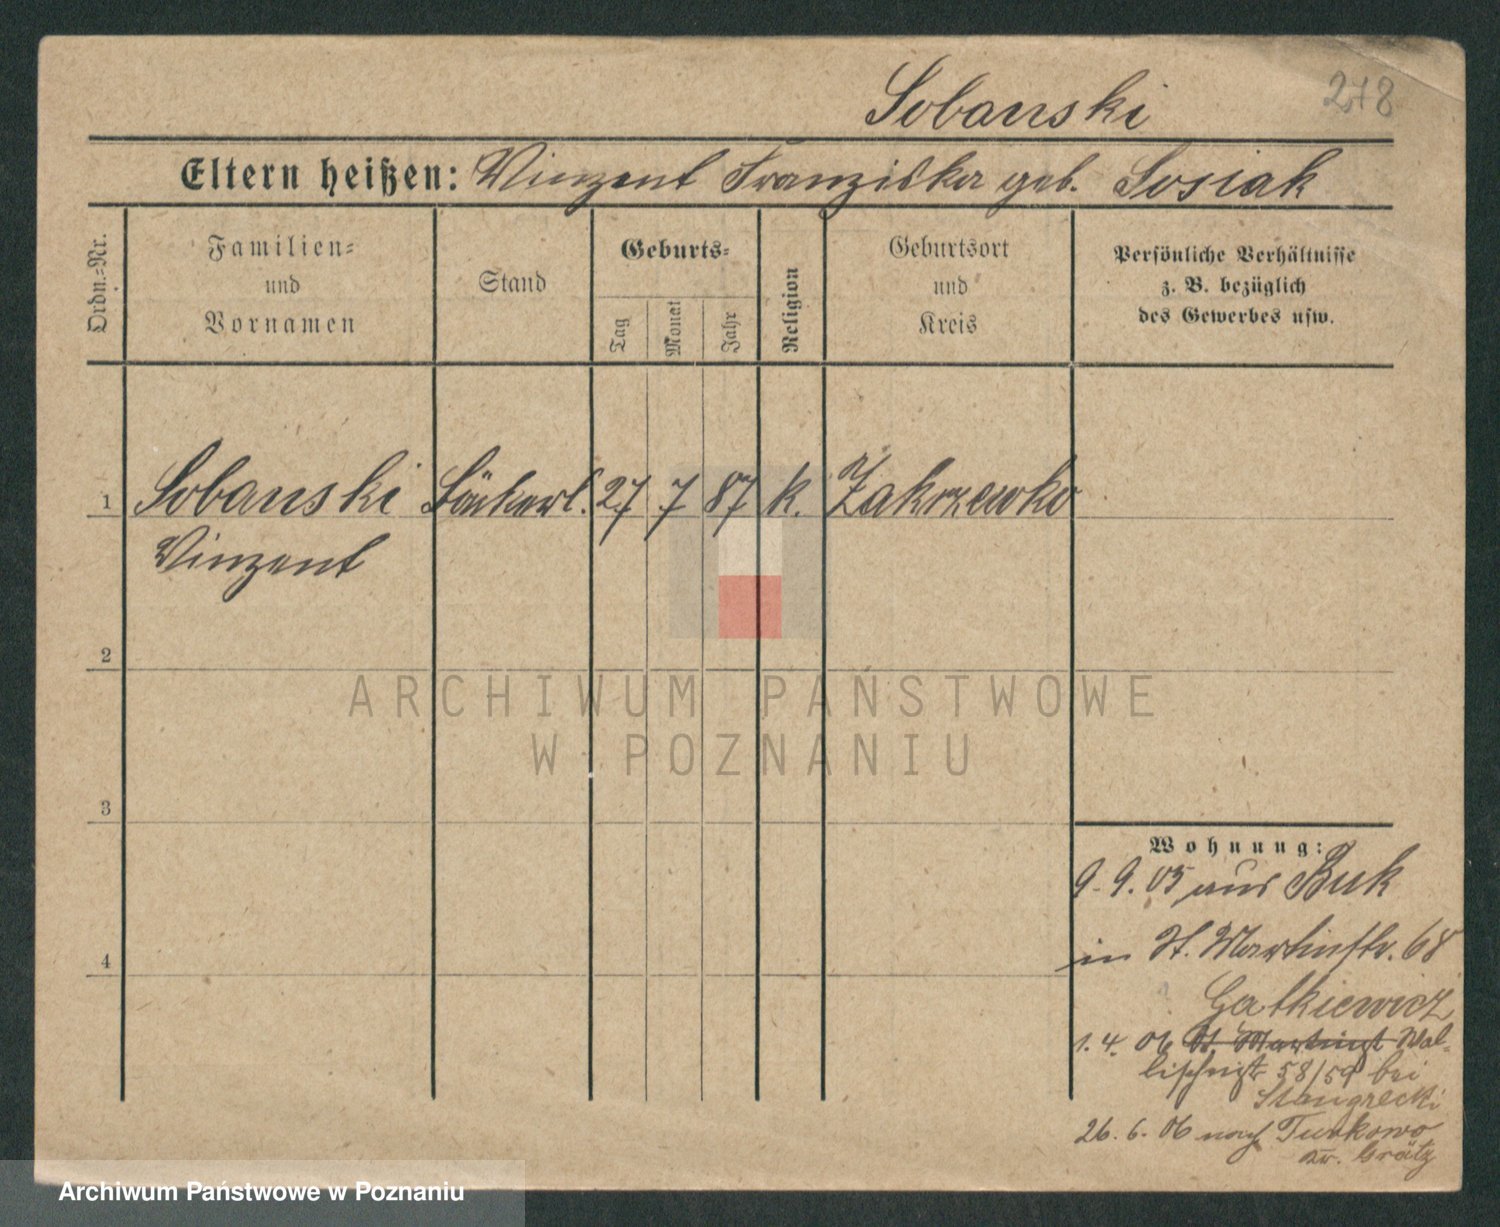 278
Sobanski
Eltern heißen: Vinzent Franziska geb. Sosiak
Ordn.-Nr.
Familien-
und
Vornamen
Stand
Geburts-
Tag
Monat
Jahr
Religion
Geburtsort
und
Kreis
Persönliche Verhältnisse
z. B. bezüglich
des Gewerbes usw.
1 Sobanski Bäckerl. 27 7 87 k. Zakrzewko
Vinzent
2
3
4
Wohnung:
9. 9. 05 aus Buk
in St. Martinstr. 68
1. 4. 06 St Martinst Wal-
lischeistr 58/59 bei
26. 6. 06 nach Turkowo
Kr. Grätz
ARCHIWUM PAŃSTWOWE
W POZNANIU
Archiwum Państwowe w Poznaniu